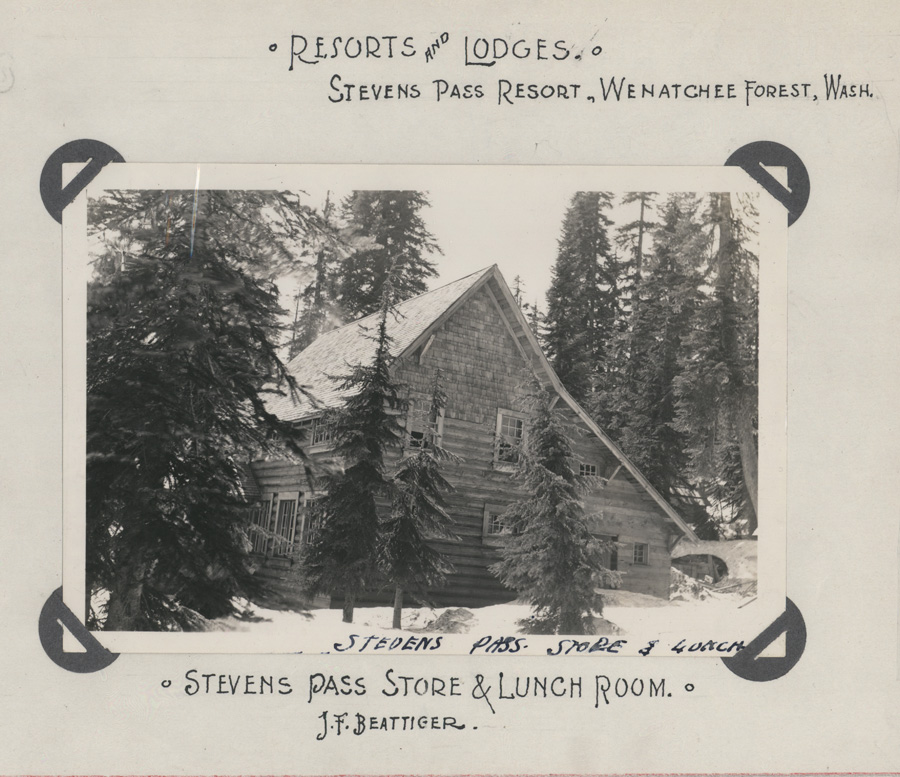 RESORTS AND LODGES.
STEVENS PASS RESORT, WENATCHEE FOREST, WASH.
STEVENS PASS. STORE & LUNCH
STEVENS PASS STORE & LUNCH ROOM.
J.F. BEATTIGER.